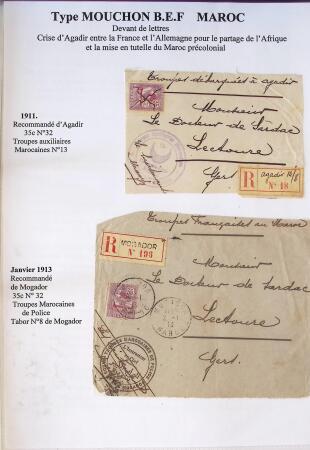 Type MOUCHON B.E.F MAROC
Devant de lettres
Crise d'Agadir entre la France et l'Allemagne pour le partage de l'Afrique
et la mise en tutelle du Maroc précolonial
1911.
Recommandé d'Agadir
35c N°32
Troupes auxiliaires
Marocaines N°13
Troupes débarquées à agadir
Monsieur
Le Docteur de Sardac
Lectoure
Gers
R
agadir
N° 18
Janvier 1913
Recommandé
de Mogador
35c N° 32
Troupes Marocaines
de Police
Tabor N°8 de Mogador
Troupes Françaises au Maroc
R
MOGADOR
N° 196
Monsieur
Le Docteur de Sardac
Lectoure
Gers
TROUPES MAROCAINES DE POLICE